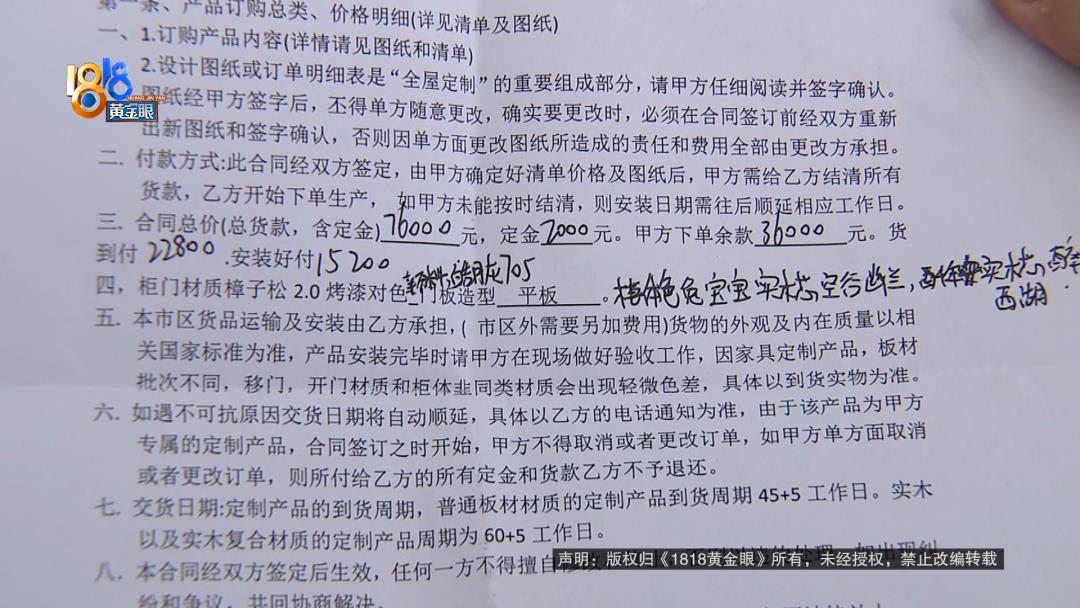 第一条、产品订购总类、价格明细(详见清单及图纸)
一、1.订购产品内容(详情请见图纸和清单)
2.设计图纸或订单明细表是“全屋定制”的重要组成部分，请甲方任细阅读并签字确认。
图纸经甲方签字后，丕得单方随意更改，确实要更改时，必须在合同签订前经双方重新
出新图纸和签字确认，否则因单方面更改图纸所造成的责任和费用全部由更改方承担。
二. 付款方式:此合同经双方签定，由甲方确定好清单价格及图纸后，甲方需给乙方结清所有
货款，乙方开始下单生产， 如甲方未能按时结清，则安装日期需往后顺延相应工作日。
三. 合同总价(总货款，含定金)76000元，定金2000元。甲方下单余款36000元。货
到付22800.安装好付15200
705
四，柜门材质樟子松 2.0 烤漆对色 门板造型 平板 。
西湖
五. 本市区货品运输及安装由乙方承担，( 市区外需要另加费用)货物的外观及内在质量以相
关国家标准为准，产品安装完毕时请甲方在现场做好验收工作，因家具定制产品，板材
批次不同，移门，开门材质和柜体非同类材质会出现轻微色差，具体以到货实物为准。
六. 如遇不可抗原因交货日期将自动顺延，具体以乙方的电话通知为准，由于该产品为甲方
专属的定制产品，合同签订之时开始，甲方不得取消或者更改订单，如甲方单方面取消
或者更改订单，则所付给乙方的所有定金和货款乙方不予退还。
七. 交货日期:定制产品的到货周期，普通板材材质的定制产品到货周期 45+5 工作日。实木
以及实木复合材质的定制产品周期为 60+5 工作日。
八. 本合同经双方签定后生效，任何一方不得擅自修改
纷和争议，共回协商解决。
1818
HUANG JIN YAN
黄金眼
声明：版权归《1818黄金眼》所有，未经授权，禁止改编转载